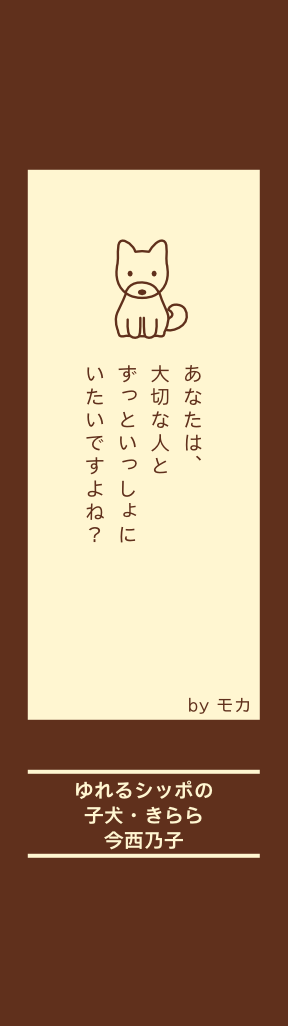 あなたは、
大切な人と
ずっといっしょに
いたいですよね？
by モカ
ゆれるシッポの
子犬・きらら
今西乃子